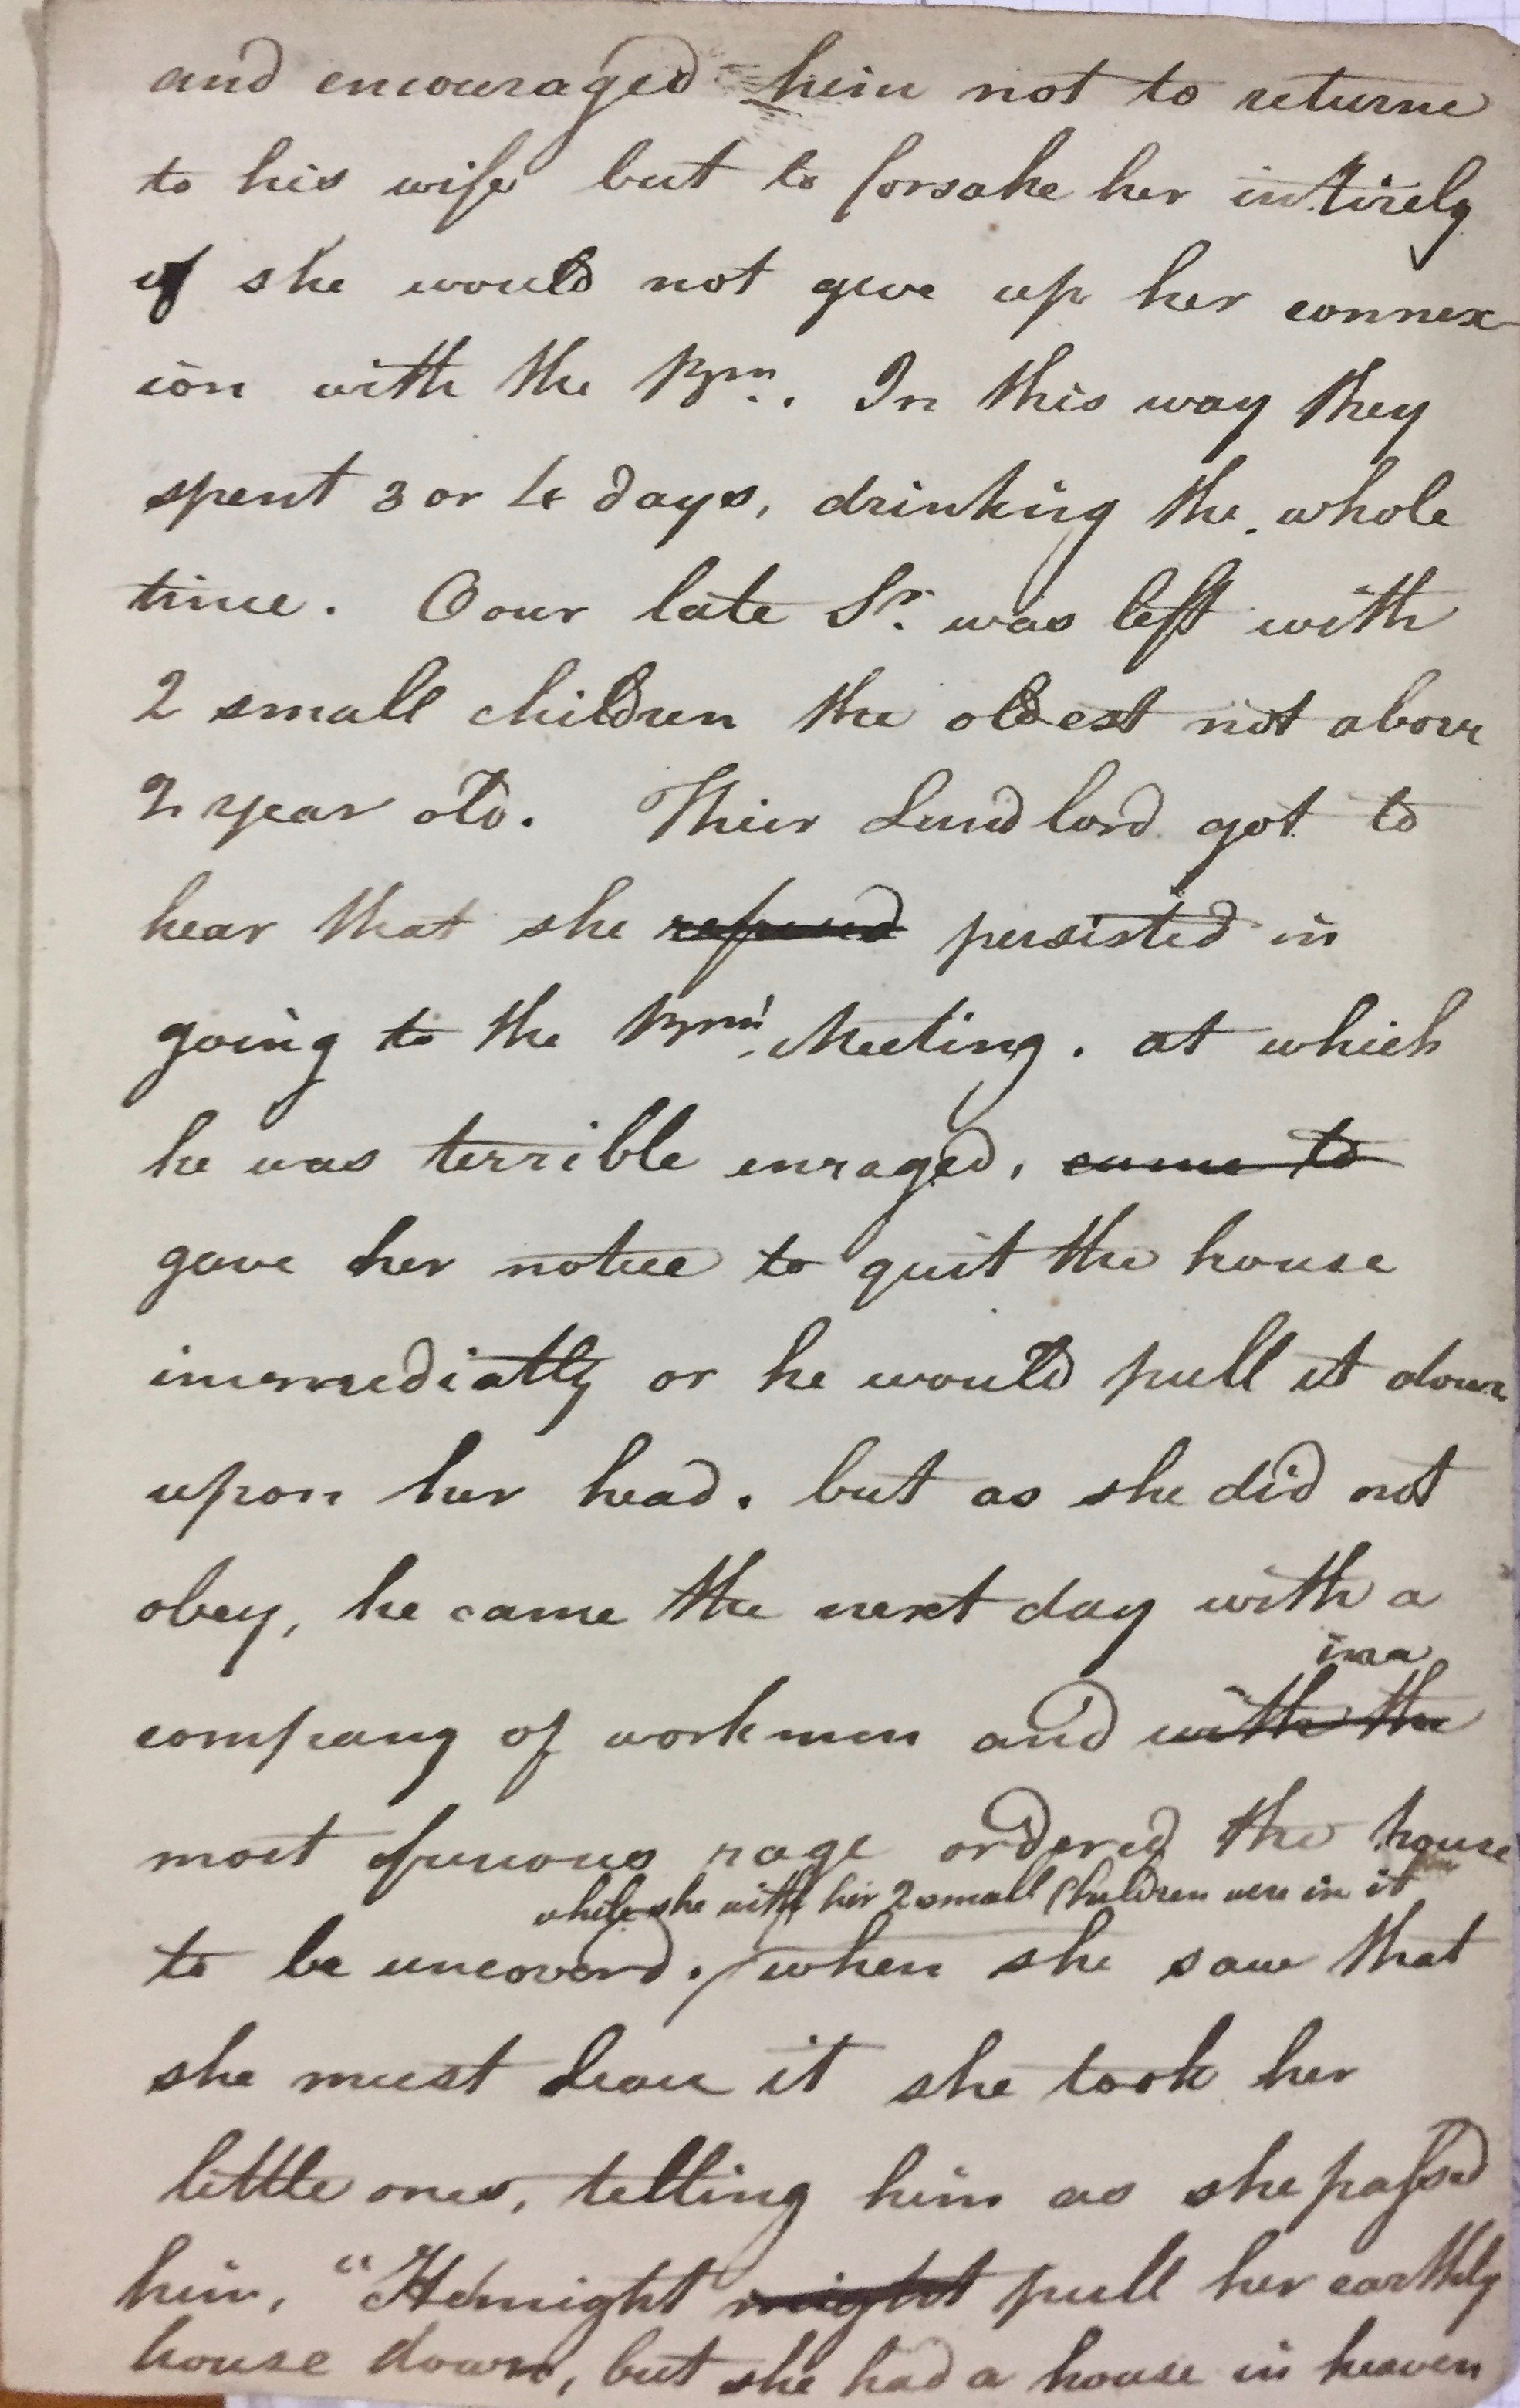 and encouraged him not to returne
to his wife but to forsake her intirely
if she would not give up her connex-
ion with the Brn. In this way they
spent 3 or 4 days, drinking the whole
time. Oour late Sr. was left with
2 small children the oldest not above
2 year old. Thier Landlord got to
hear that she refused persisted in
going to the Brn' Meeting. at which
he was terrible enraged, came to
gave her notice to quit the house
immediatly or he would pull it down
upon her head. but as she did not
obey, he came the next day with a
in a
company of workmen and with the
most furious rage ordered the house
while she with her 2 small Children were in it
to be uncoverd. when she saw that
she must leave it she took her
little ones, telling him as she passed
him, "He might might pull her earthly
house down, but she had a house in heaven